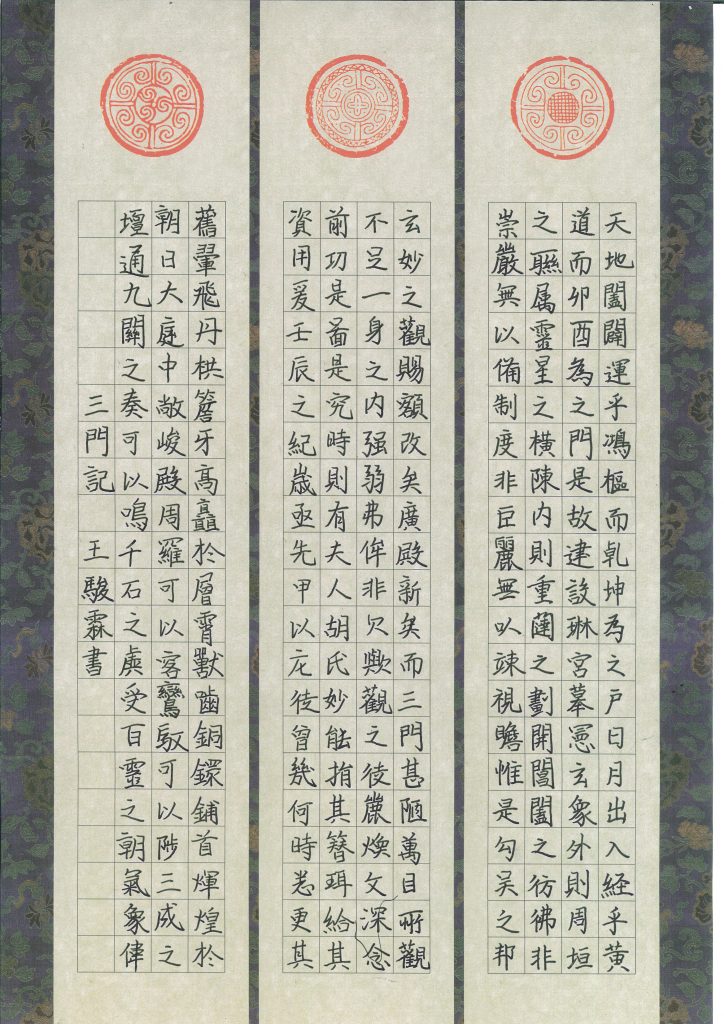 天地闔闢運乎鴻樞而乾坤為之戶日月出入経乎黃
道而卯酉為之門是故建設琳宮摹憲玄象外則周垣
之聯属靈星之橫陳内則重闥之劃開閶闔之彷彿非
崇嚴無以備制度非巨麗無以竦視瞻惟是勾吴之邦
玄妙之觀賜額改矣廣殿新矣而三門甚陋萬目所觀
不足一身之内强弱弗侔非欠歟觀之徒嚴煥文深念
前功是啚是究時則有夫人胡氏妙能捐其簪珥給其
資用爰壬辰之紀歲亟先甲以庀徒曾幾何時悉更其
舊翬飛丹栱簷牙高矗於層霄獸齧銅鐶鋪首輝煌於
朝日大庭中敞峻殿周羅可以容鸞馭可以陟三成之
壇通九關之奏可以鳴千石之虡受百靈之朝氣象偉
三門記 王駿霖書